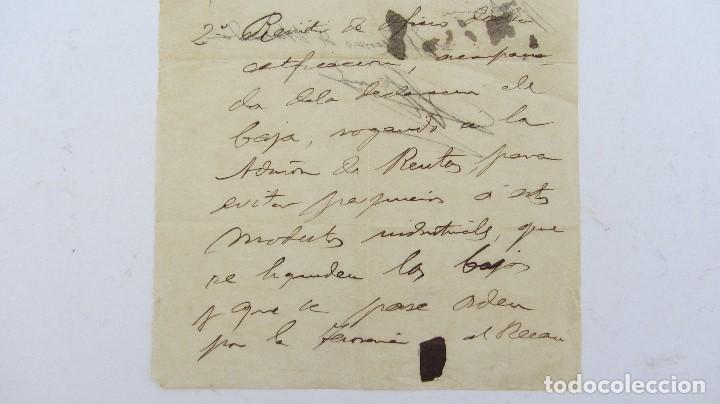 2º Remitir de oficio dicha
certificacion, acompaña
da dela declaracion de
baja, rogando á la
Admón de Rentas, para
evitar perjuicios á estos
modestos industriales, que
se liquiden las bajas
y que se pase orden
por la Tesoreria al Recau
todocoleccion.net